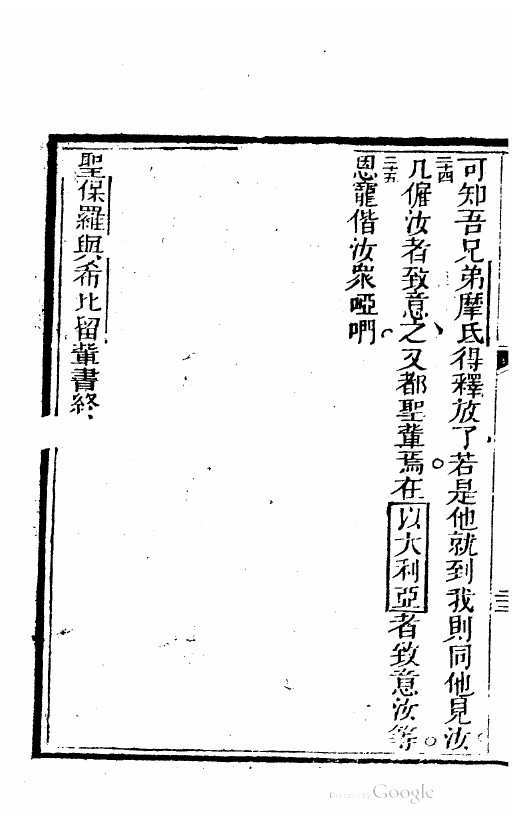 可知吾兄弟摩氏得釋放了若是他就到我則同他見汝。
二十四
凡僱汝者致意之、又都聖輩焉。在以大利亞者致意汝等。
二十五
恩寵偕汝眾。啞唎
聖保羅與希比留輩書終、
三
Digitized by Google